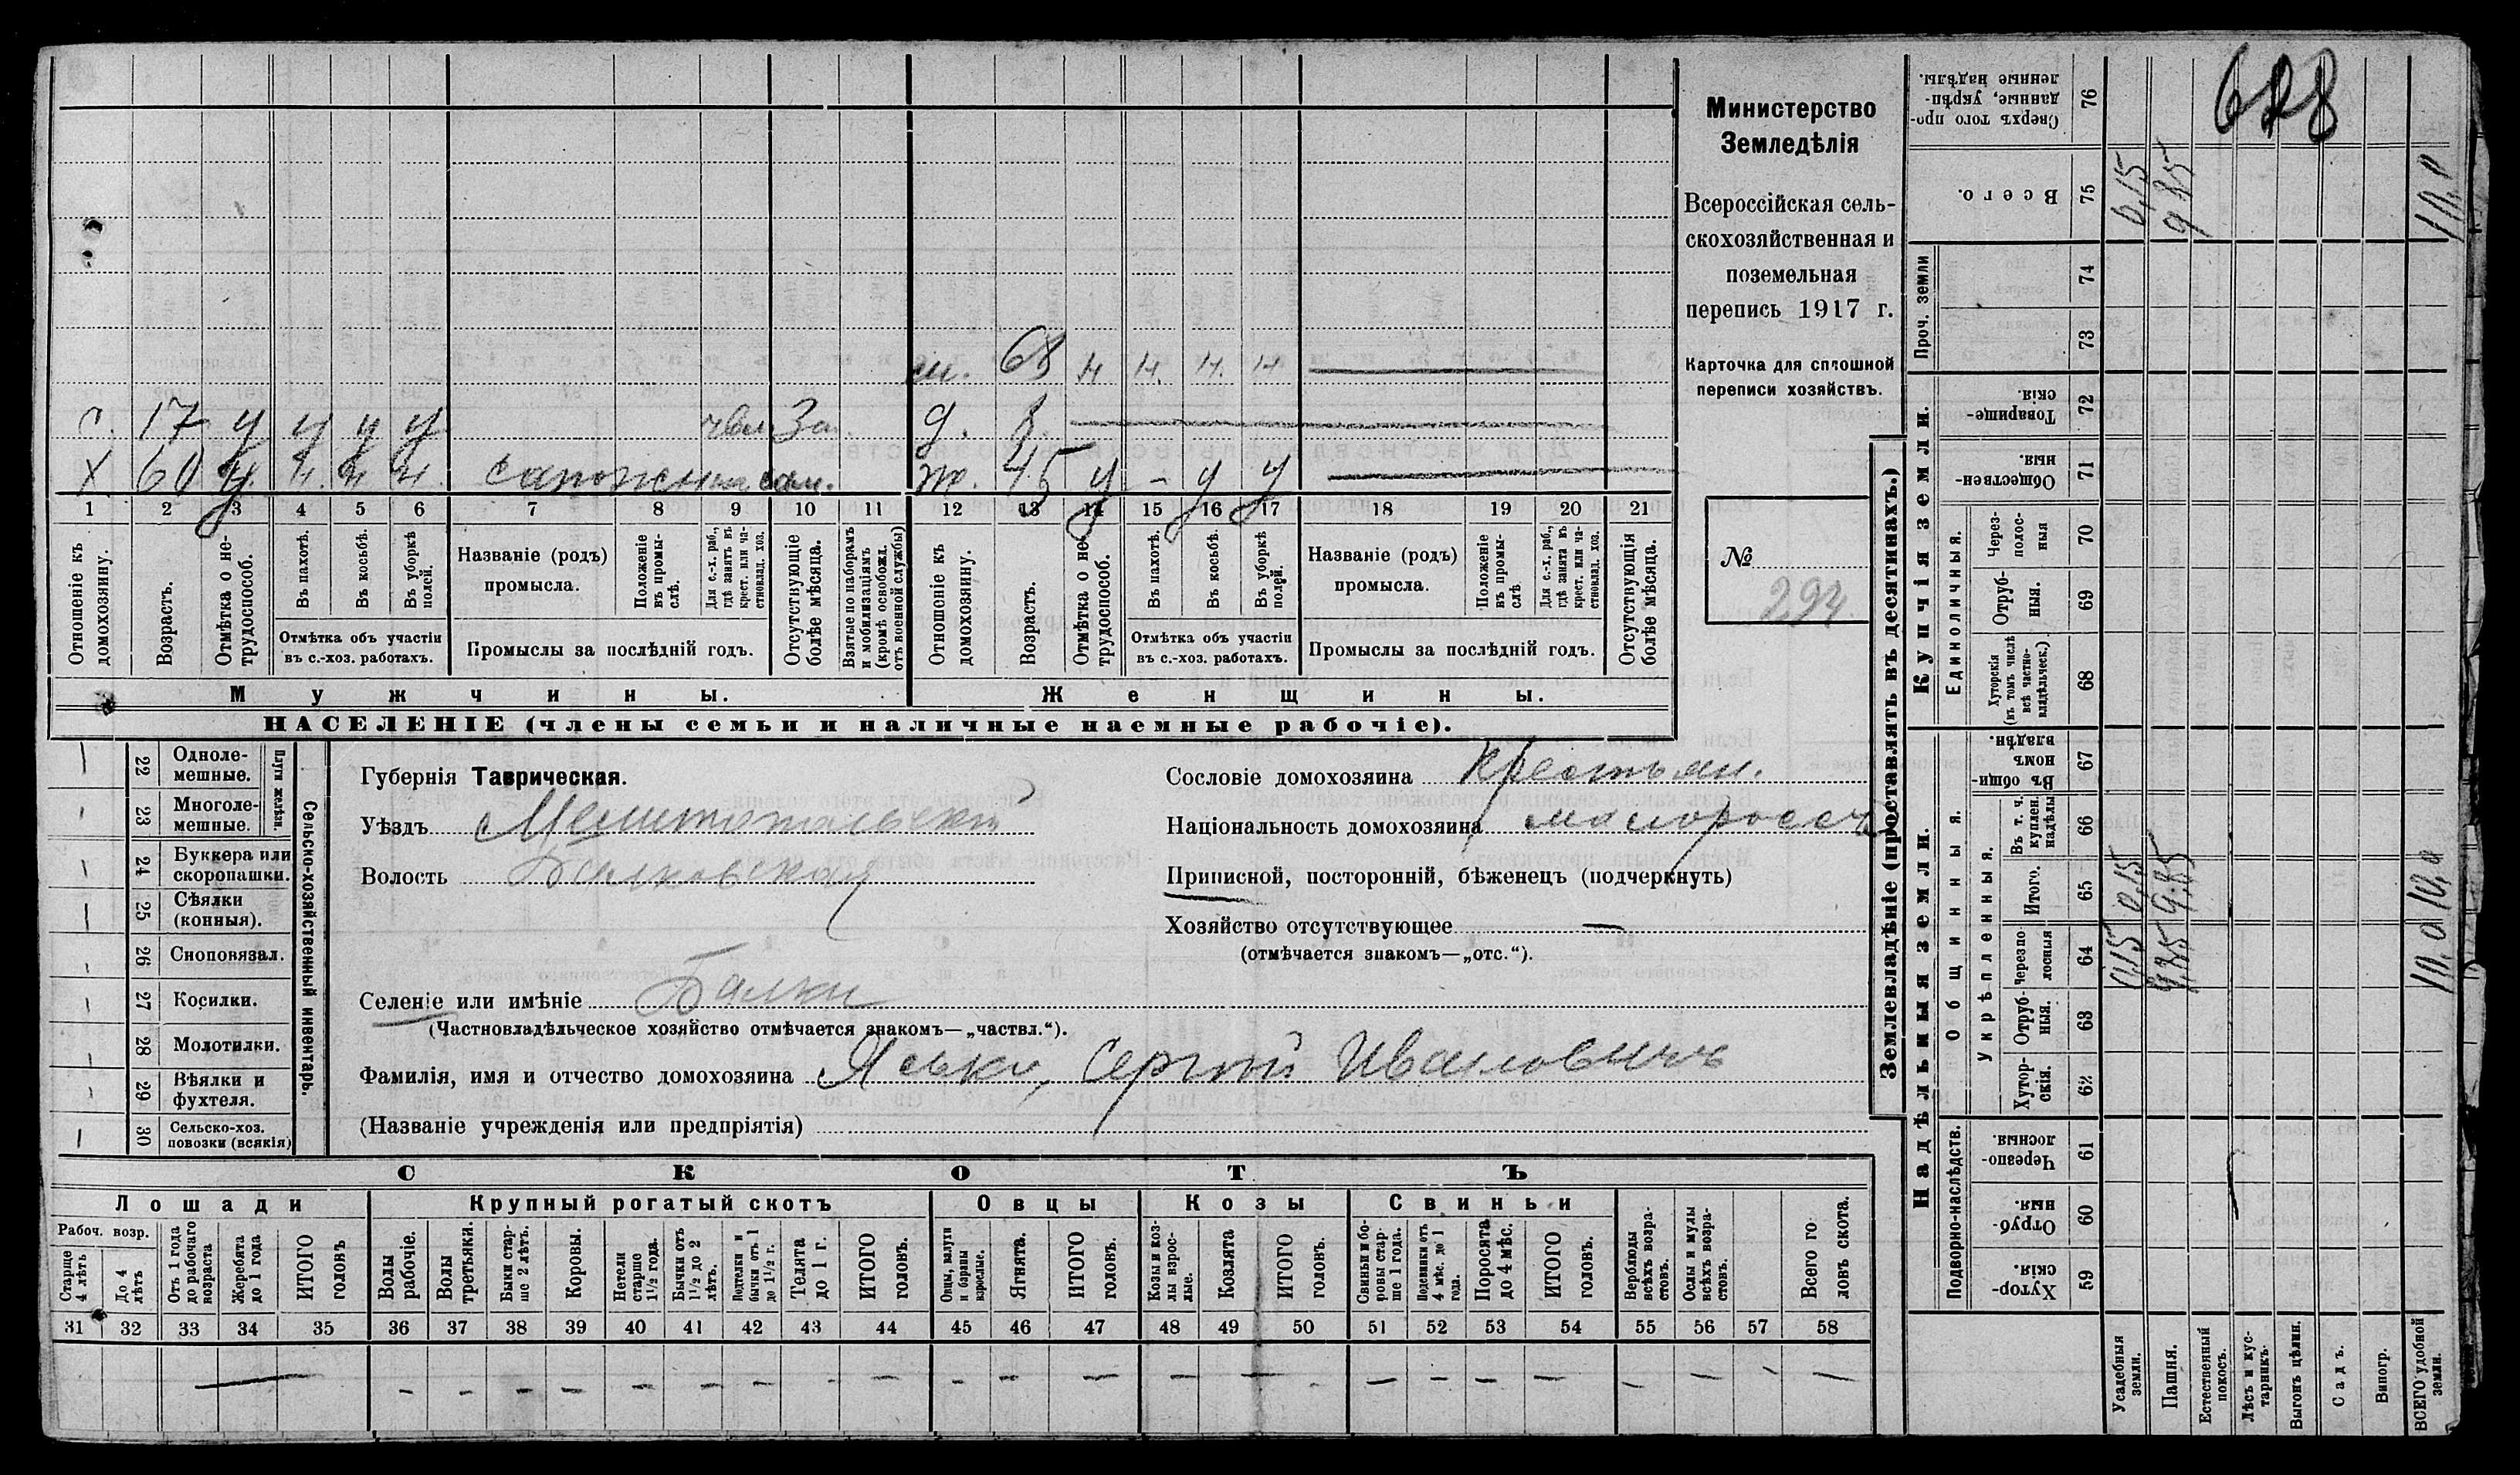 Министерство
Земледѣлія
Всероссійская сель-
скохозяйственная и
поземельная
перепись 1917 г.
Карточка для сплошной
переписи хозяйствъ.
№
294
628
м. 68 н н. н. н
с. 17 у у у у
За
д. 8.
х 60 у. н. н н. сапожник сам.
ж. 45 у - у у
1 2 3 4 5 6 7 8 9 10 11 12 13 14 15 16 17 18 19 20 21
Отношеніе къ домохозяину.
Возрастъ.
Отмѣтка о не-трудоспособ.
Въ пахотѣ.
Въ косьбѣ.
Въ уборкѣ полей.
Отмѣтка объ участіи
въ с.-хоз. работахъ.
Названіе (родъ)
промысла.
Положеніе въ промы-слѣ.
Для с.-х. раб., гдѣ занятъ въ крест. или ча-стновлад. хоз.
Промыслы за послѣдній годъ.
Отсутствующіе болѣе мѣсяца.
Взятые по наборамъ и мобилизаціямъ (кромѣ освобожд. отъ военной службы)
Отношеніе къ домохозяину.
Возрастъ.
Отмѣтка о не-трудоспособ.
Въ пахотѣ.
Въ косьбѣ.
Въ уборкѣ полей.
Отмѣтка объ участіи
въ с.-хоз. работахъ.
Названіе (родъ)
промысла.
Положеніе въ промы-слѣ
Для с.-х. раб., гдѣ занята въ крест. или ча-стновлад. хоз.
Промыслы за послѣдній годъ.
Отсутствующія болѣе мѣсяца.
Мужчины.
Женщины.
НАСЕЛЕНІЕ (члены семьи и наличные наемные рабочіе).
Сельско-хозяйственный инвентарь.
Плуги желѣзн.
22 Одноле-мешные.
23 Многоле-мешные.
24 Буккера или скоропашки.
25 Сѣялки (конныя).
26 Сноповязал.
27 Косилки.
28 Молотилки.
29 Вѣялки и фухтеля.
30 Сельско-хоз. повозки (всякія)
Губернія Таврическая.
Уѣздъ Мелитопольскій
Волость Балковская
Селеніе или имѣніе Балки
(Частновладѣльческое хозяйство отмѣчается знакомъ—„частвл.“).
Фамилія, имя и отчество домохозяина Яська, Сергій Ивановичъ
(Названіе учрежденія или предпріятія)
Сословіе домохозяина крестьян.
Національность домохозяина малороссъ
Приписной, посторонній, бѣженецъ (подчеркнуть)
Хозяйство отсутствующее —
(отмѣчается знакомъ—„отс.“).
СКОТЪ
Лошади
Крупный рогатый скотъ
Овцы
Козы
Свиньи
Рабоч. возр.
Старше 4 лѣтъ
До 4 лѣтъ
Отъ 1 года до рабочаго возраста
Жеребята до 1 года
ИТОГО головъ
Волы рабочіе.
Волы третьяки.
Быки стар-ше 2 лѣтъ.
Коровы.
Нетели старше 1½ года.
Бычки отъ 1½ до 2 лѣтъ.
Подтелки и бычки отъ 1 до 1½ г.
Телята до 1 г.
ИТОГО головъ.
Овцы, валухи и бараны взрослые.
Ягнята.
ИТОГО головъ.
Козы и коз-лы взрос-лые.
Козлята
ИТОГО головъ.
Свиньи и бо-ровы стар-ше 1 года.
Подсвинки отъ 4 мѣс. до 1 года.
Поросята до 4 мѣс.
ИТОГО головъ.
Верблюды всѣхъ возра-стовъ.
Ослы и мулы всѣхъ возра-стовъ.
Всего го-ловъ скота.
31 32 33 34 35 36 37 38 39 40 41 42 43 44 45 46 47 48 49 50 51 52 53 54 55 56 57 58
Землевладѣніе (проставлять въ десятинахъ.)
Купчія земли.
Надѣльныя земли.
Сверхъ того про-данные, укрѣп-ленные надѣлы. 76
Всего. 75 0,15 9.85 10,0
Проч. земли 74 73
Товарище-скія. 72
Обществен-ныя. 71
Единоличныя.
Через-полос-ныя 70
Отруб-ныя. 69
Хуторскія (въ томъ числѣ всѣ частно-владѣльческ.) 68
Общинныя.
Въ общин-номъ владѣн. 67
Укрѣпленныя.
Въ т. ч. куплен. надѣлы 66
Итого. 65 0,15 9.85 10,0
Черезпо-лосныя 64 0,15 9.85 10,0
Отруб-ныя. 63
Хутор-скія. 62
Подворно-наслѣдств.
Черезпо-лосныя. 61
Отруб-ныя 60
Хутор-скія. 59
Усадебныя земли.
Пашня.
Естественный покосъ.
Лѣсъ и кус-тарникъ.
Выгонъ цѣлин.
Садъ.
Виногр.
ВСЕГО удобной земли.